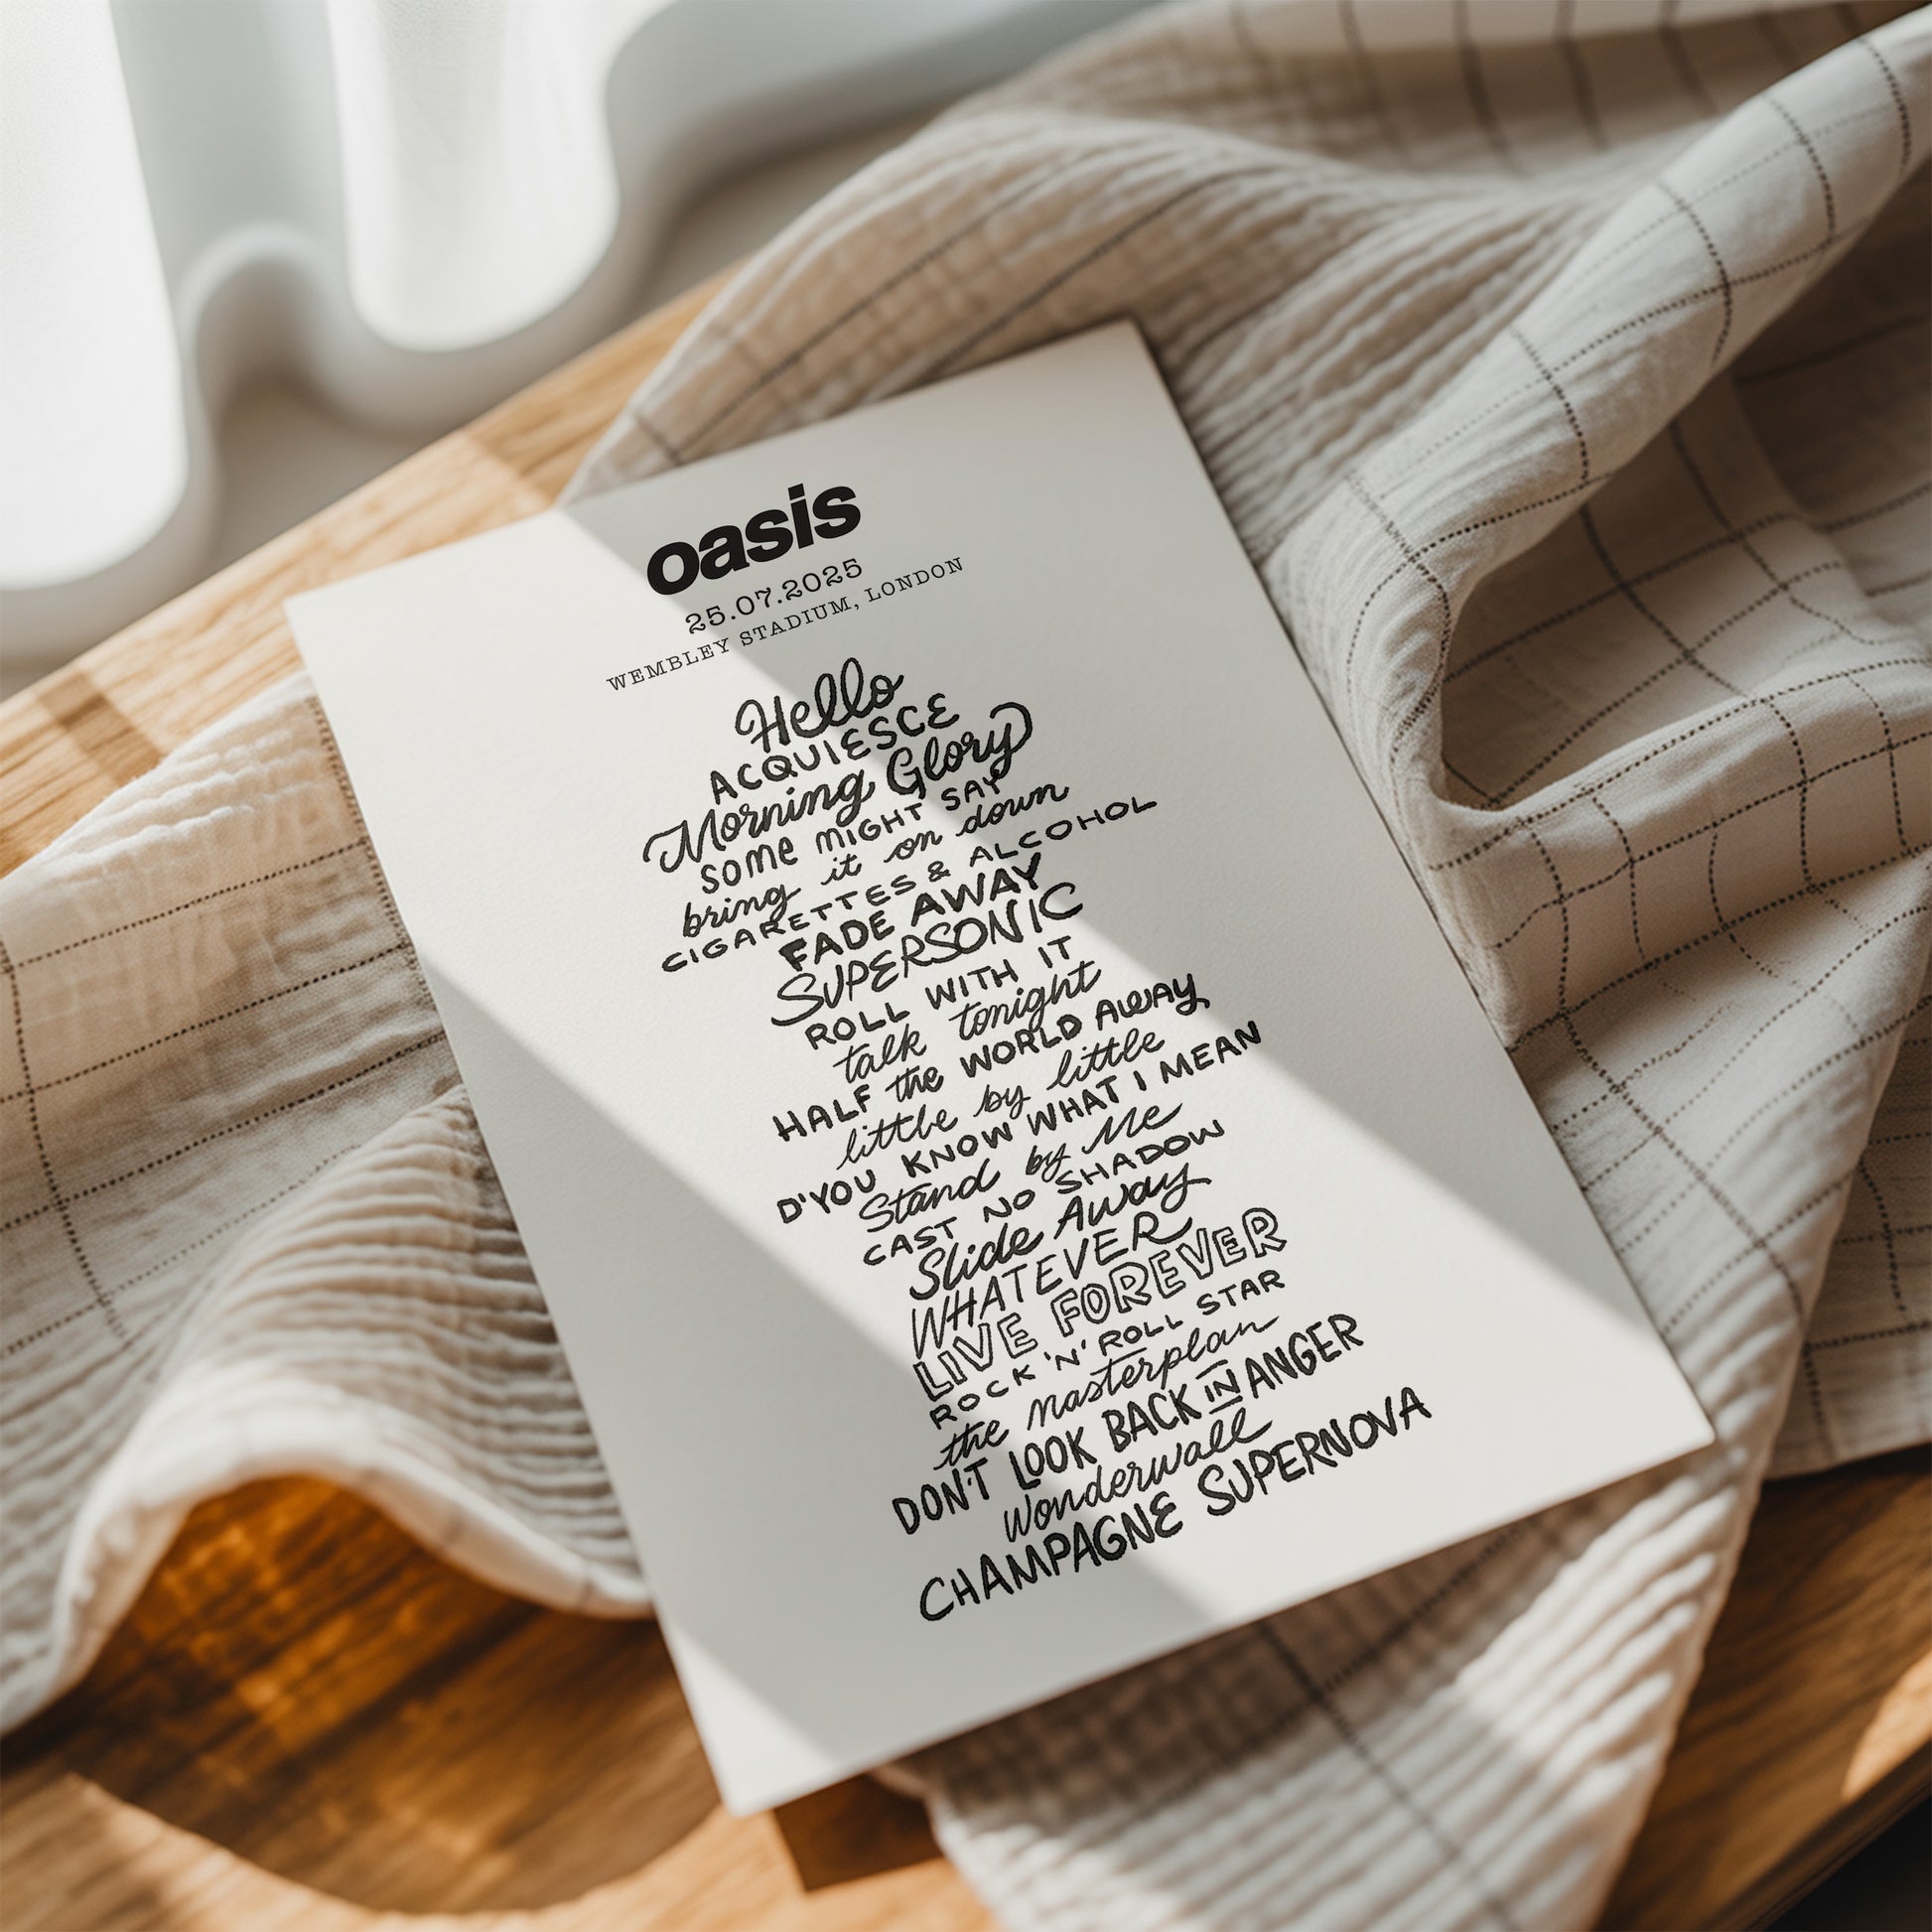 oasis
25.07.2025
WEMBLEY STADIUM, LONDON
Hello
ACQUIESCE
Morning Glory
SOME MIGHT SAY
bring it on down
CIGARETTES & ALCOHOL
FADE AWAY
SUPERSONIC
ROLL WITH IT
talk tonight
HALF the WORLD AWAY
little by little
D'YOU KNOW WHAT I MEAN
Stand by Me
CAST NO SHADOW
Slide Away
WHATEVER
LIVE FOREVER
ROCK 'N' ROLL STAR
the masterplan
DON'T LOOK BACK IN ANGER
Wonderwall
CHAMPAGNE SUPERNOVA